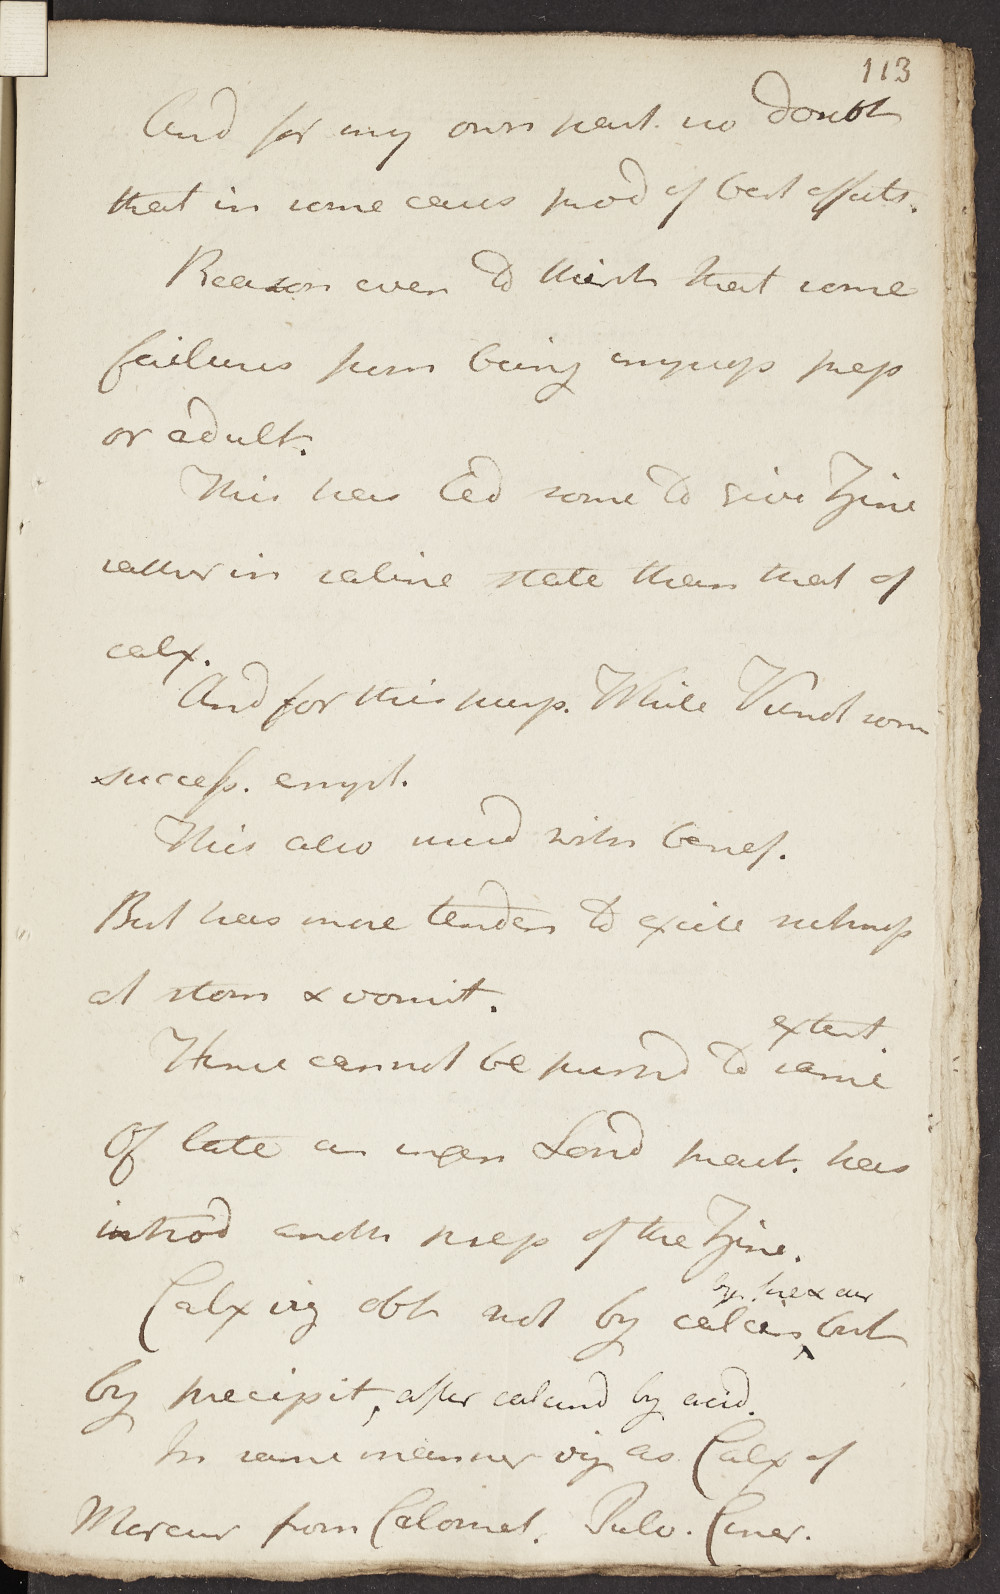 113
And for my own part. no doubt
that in some cases prod of best effects.
Reason even to think that some
failures from being improp prep
or adult.
This has led some to give Zinc
rather in saline state than that of
calx.
And for this purp. White Vitriol som
success. empl.
This also used with benef.
But has more tenden to excite
at stom & vomit.
extent.
Hence cannot be pursud to same
Of late an ingen Lond pract. has
introd anoth prep of the Zinc.
by fire & air
Calx viz obt not by calcin, but
by precipit, after calcind by acid.
In same manner viz as Calx of
Mercur from Calomel. Pulv. Ciner.